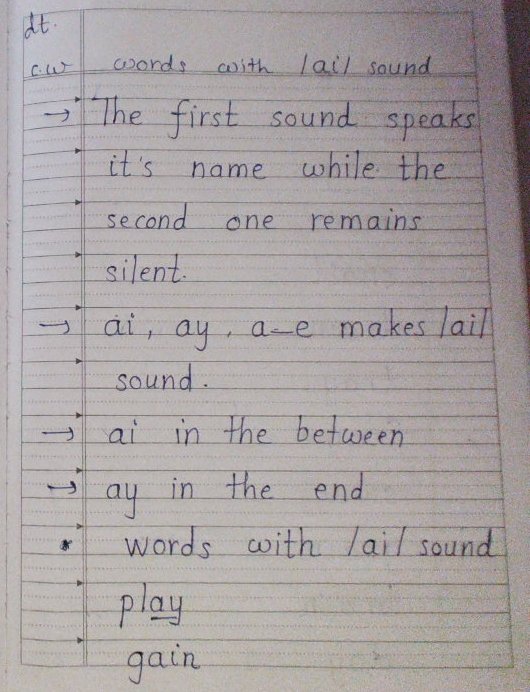 dt.
c.w words with /ai/ sound
→ The first sound speaks
it's name while the
second one remains
silent.
→ ai, ay, a-e makes /ai/
sound.
→ ai in the between
→ ay in the end
* words with /ai/ sound
play
gain